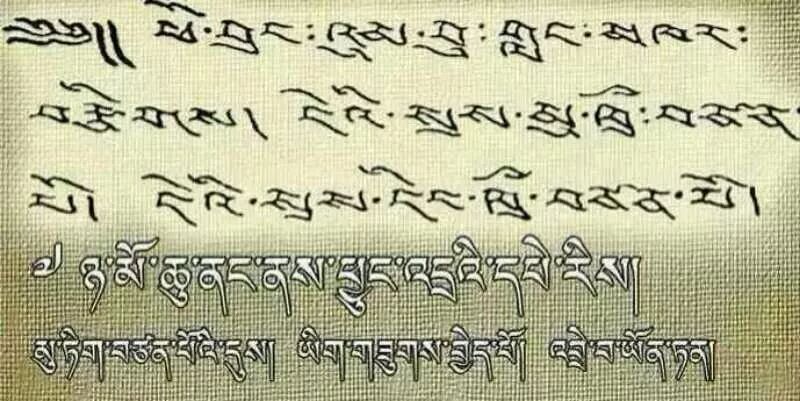 ༄༅༅།། ཕོ་བྲང་འུམ་བུ་གླང་མཁར་
བརྩིགས། དེའི་སྲས་མུ་ཁྲི་བཙན་
པོ། དེའི་སྲས་དིང་ཁྲི་བཙན་པོ།
༡ ཉ་མོ་ཆུ་ནང་ནས་ཕྱུང་འདྲའི་དཔེ་རིས།
མུ་ཏིག་བཙན་པོའི་དུས། ཡིག་གཟུགས་བྱེད་པོ། འབྲེ་བ་ཡོན་ཏན།